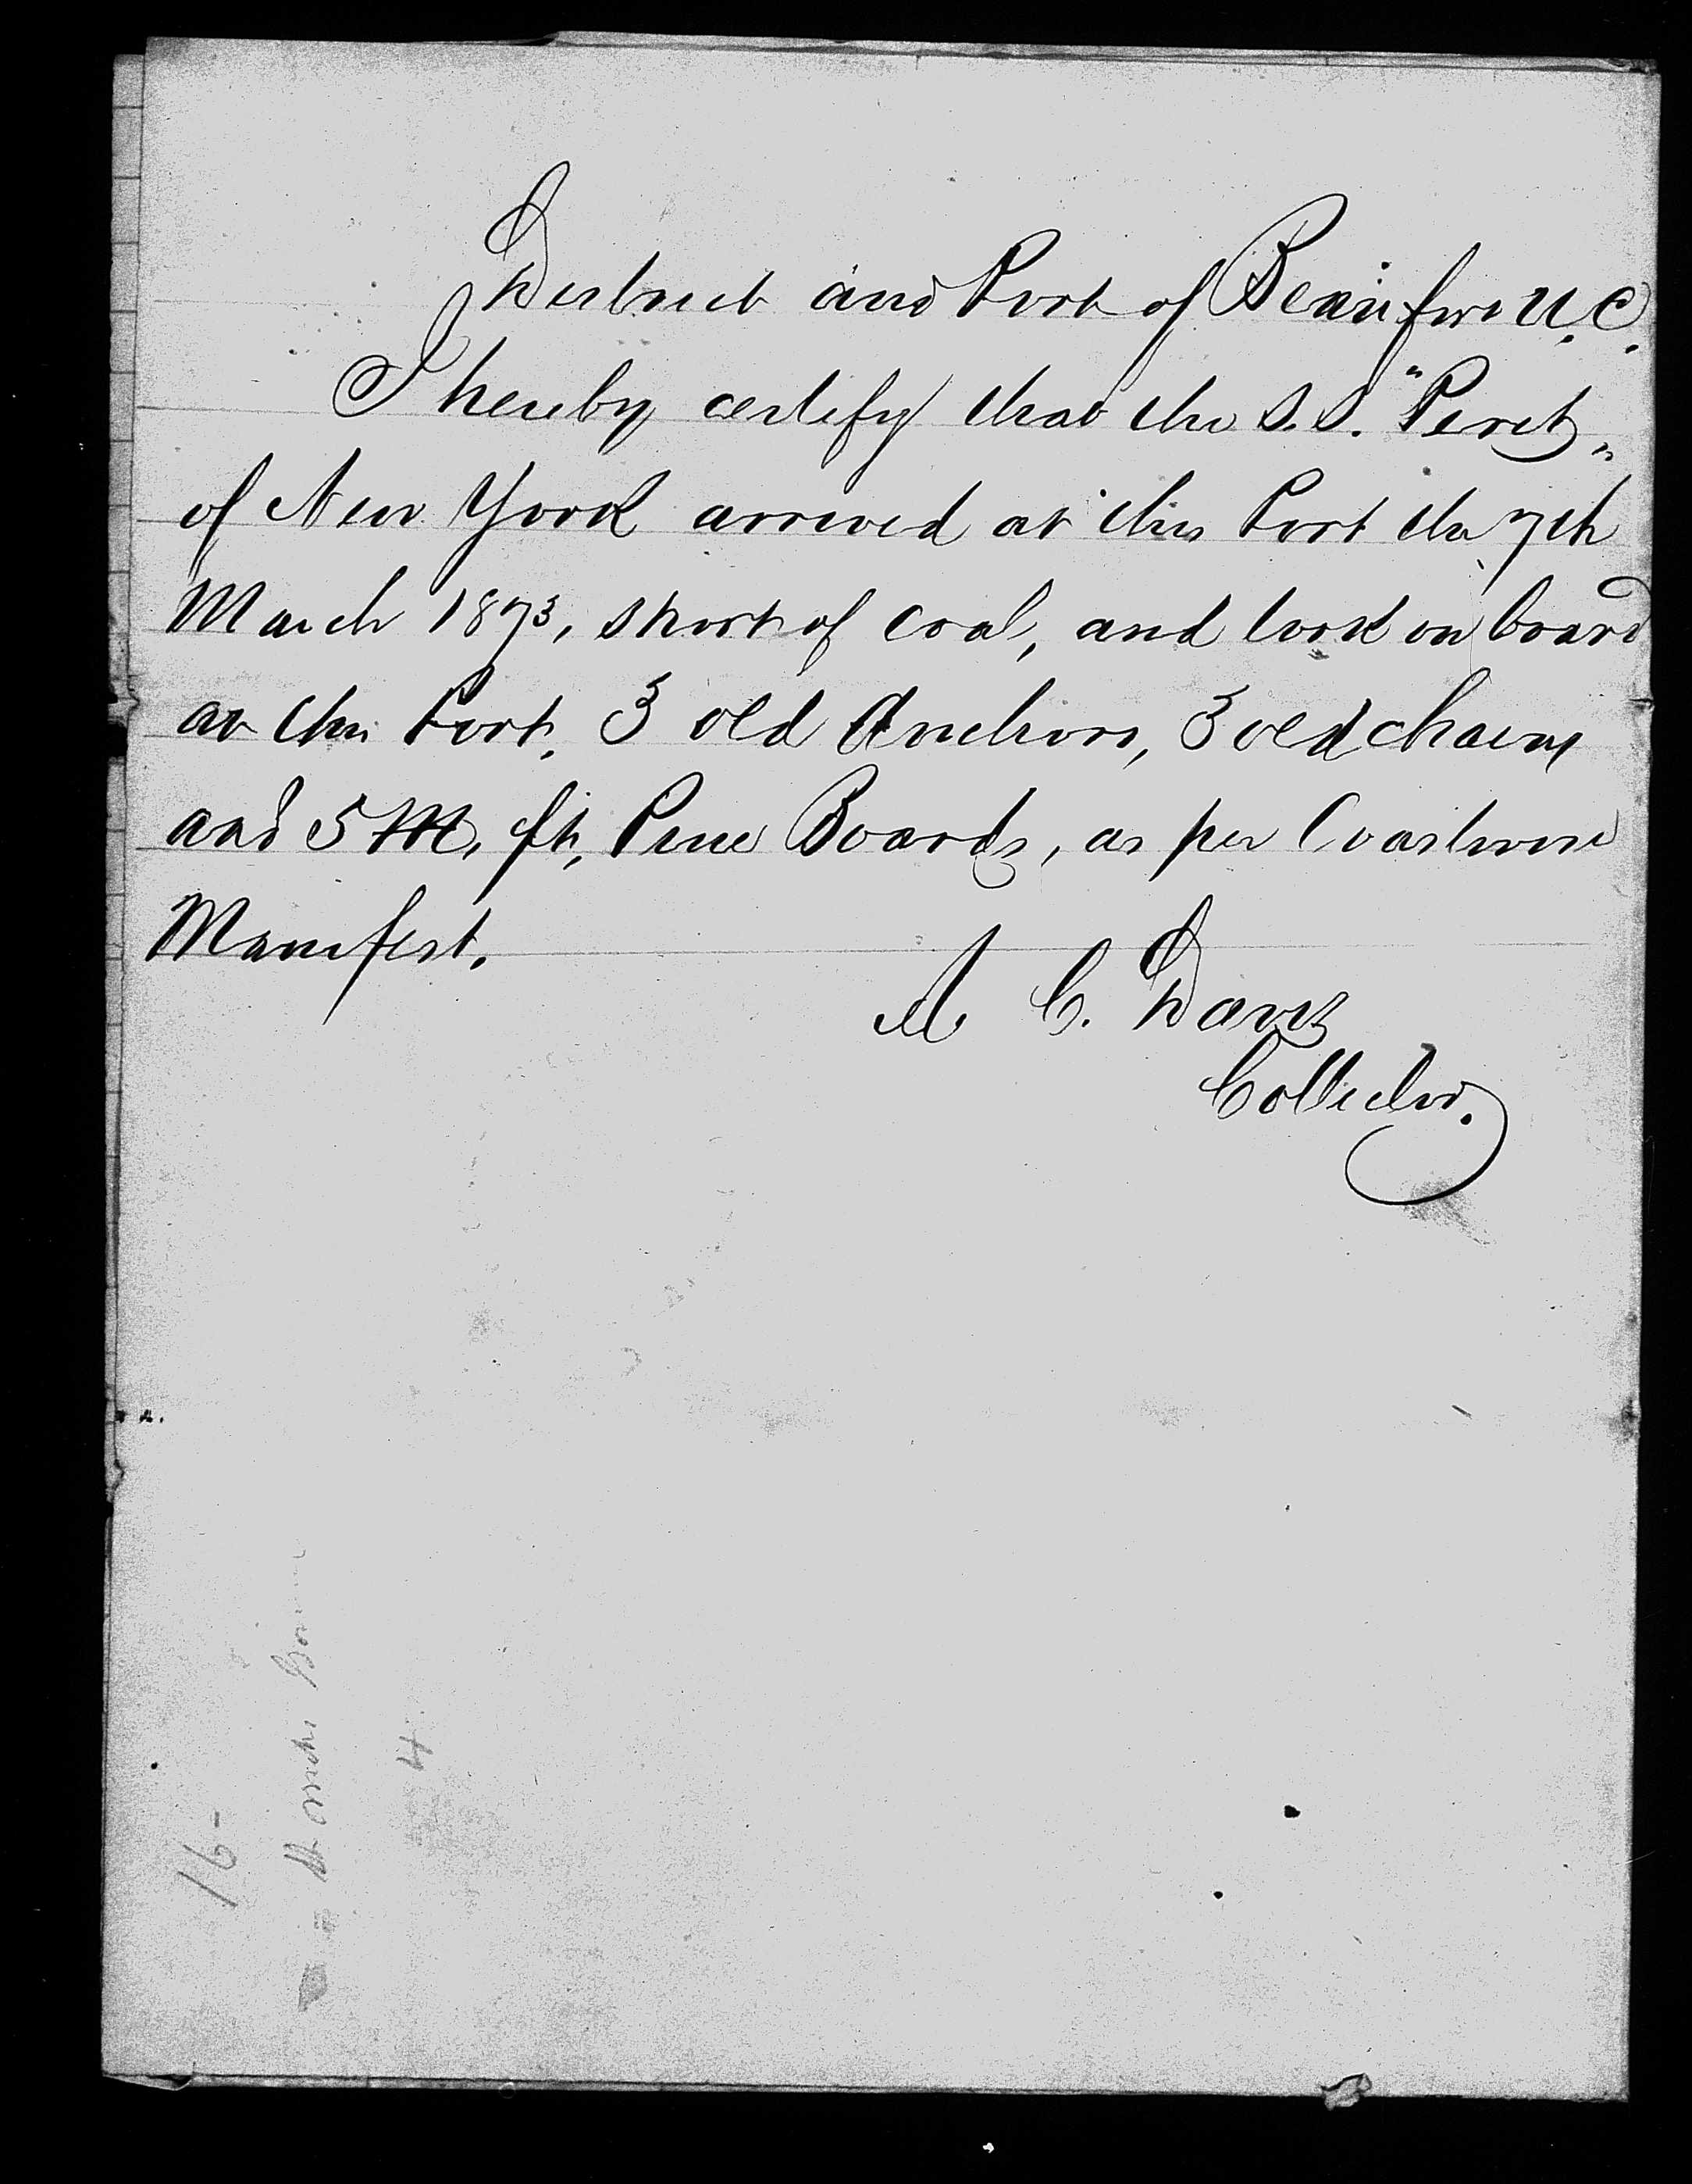 District and Port of Beaufort N.C.
I hereby certify that the S.S. "Perit"
of New York arrived at this Port the 7th
March 1873, short of coal, and took on board
at this Port, 3 old Anchors, 3 old chains
and 5 M, ft, Pine Boards, as per Coastwise
Manifest.
A C. Davis
Collector.
16-
4